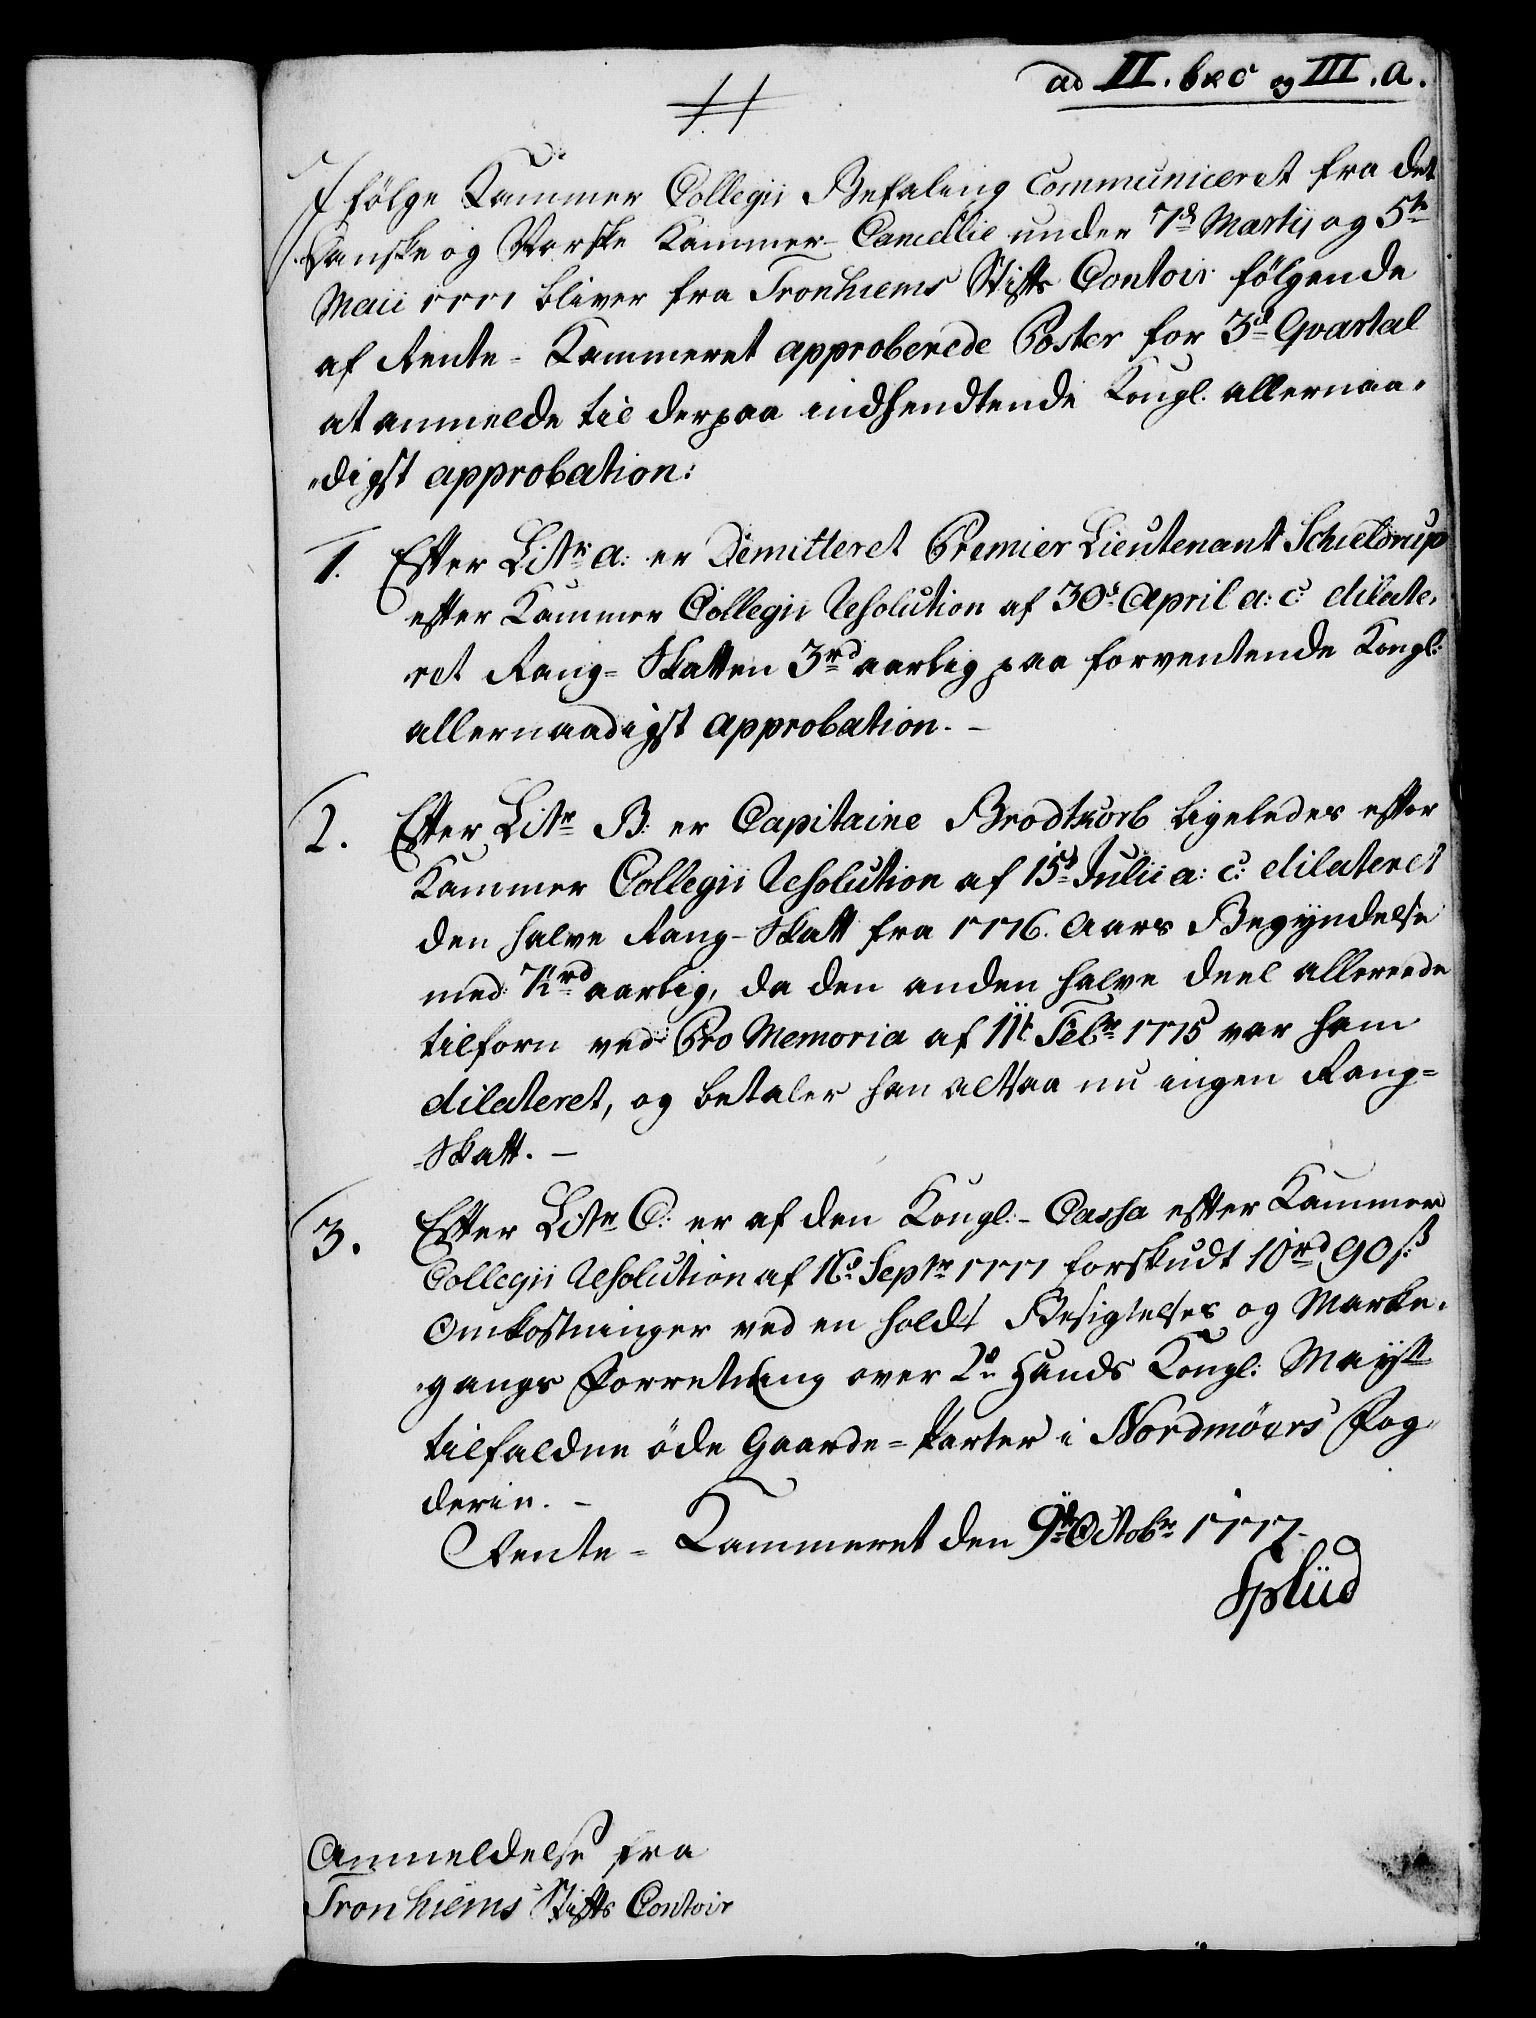 ad II. b & c og III. a.
I følge Kammer Collegii Befaling communiceret fra det
Danske og Norske Kammer-Cancellie under 7d Martij og 5te
Maii 1777 bliver fra Tronhiems Stifts Contoir følgende
af Rente-Kammeret approberede Poster for 3d Qvartal
at anmelde til derpaa indhendtende Kongl. allernaa-
digst approbation:
1. Efter Litr a: er Demitteret Premier Lieutenant Schieldrup
efter Kammer Collegii Resolution af 30d April a: c: dilate-
ret Rang-Skatten 3rd aarlig paa forventende Kongl:
allernaadigst approbation. -
2. Efter Litr B: er Capitaine Brodtkorb ligeledes efter
Kammer Collegii Resolution af 15d Julii a: c: dilateret
den halve Rang-Skatt fra 1776. Aars Begyndelse
med aarlig, da den anden halve Deel allereede
tilforn ved Pro Memoria af 11t Febr 1775 var ham
dilateret, og betaler han altsaa nu ingen Rang-
Skatt. -
3. Efter Litr C: er af den Kongl:-Cassa efter Kammer
Collegii Resolution af 16d Septr 1777 forskudt 10rd 90ß
Omkostninger ved en holdt Besigtelses og Marke-
gangs Forretning over 2de Hands Kongl: Mayst
tilfaldne öde Gaarde-Parter i Nordmöers Fog-
derie. -
Rente-Kammeret den 9d Octobr 1777.
Splüd
Anmeldelse fra
Tronhiems Stifts Contoir